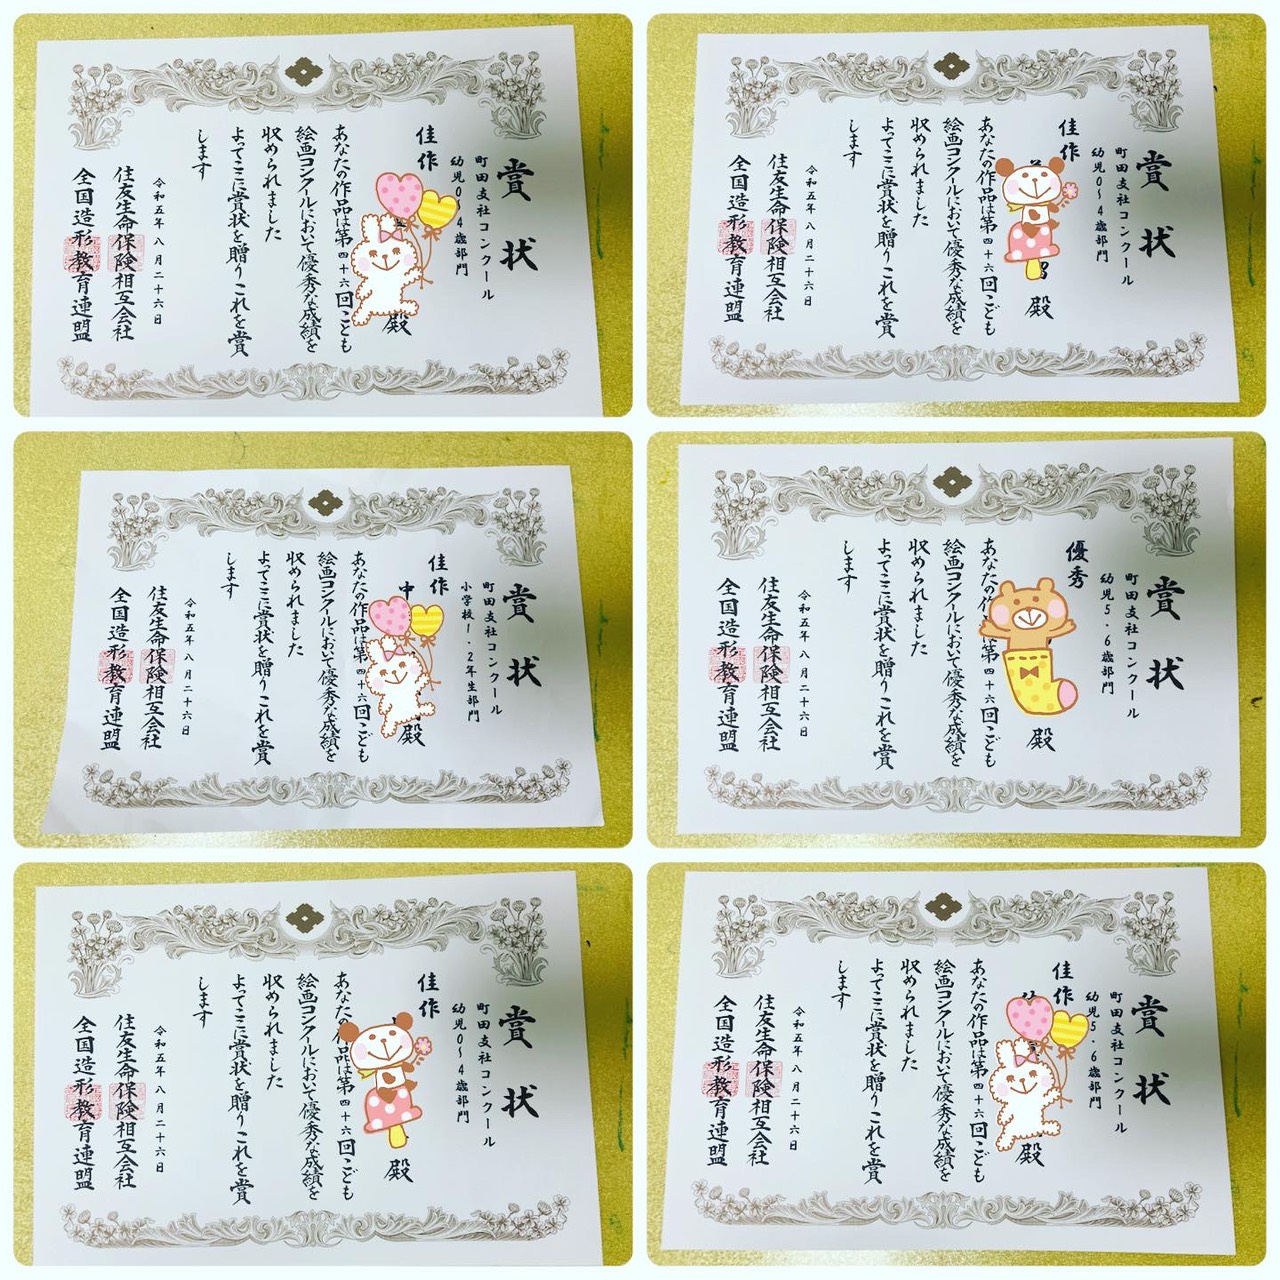 賞状
町田支社コンクール
幼児0〜4歳部門
佳作
殿
あなたの作品は第四十六回こども
絵画コンクールにおいて優秀な成績を
収められました
よってここに賞状を贈りこれを賞
します
令和五年八月二十六日
住友生命保険相互会社
全国造形教育連盟
賞状
町田支社コンクール
幼児0〜4歳部門
佳作
殿
あなたの作品は第四十六回こども
絵画コンクールにおいて優秀な成績を
収められました
よってここに賞状を贈りこれを賞
します
令和五年八月二十六日
住友生命保険相互会社
全国造形教育連盟
賞状
町田支社コンクール
小学校1・2年生部門
佳作
中 殿
あなたの作品は第四十六回こども
絵画コンクールにおいて優秀な成績を
収められました
よってここに賞状を贈りこれを賞
します
令和五年八月二十六日
住友生命保険相互会社
全国造形教育連盟
賞状
町田支社コンクール
幼児5・6歳部門
優秀
殿
あなたの作品は第四十六回こども
絵画コンクールにおいて優秀な成績を
収められました
よってここに賞状を贈りこれを賞
します
令和五年八月二十六日
住友生命保険相互会社
全国造形教育連盟
賞状
町田支社コンクール
幼児0〜4歳部門
佳作
殿
あなたの作品は第四十六回こども
絵画コンクールにおいて優秀な成績を
収められました
よってここに賞状を贈りこれを賞
します
令和五年八月二十六日
住友生命保険相互会社
全国造形教育連盟
賞状
町田支社コンクール
幼児5・6歳部門
佳作
殿
あなたの作品は第四十六回こども
絵画コンクールにおいて優秀な成績を
収められました
よってここに賞状を贈りこれを賞
します
令和五年八月二十六日
住友生命保険相互会社
全国造形教育連盟